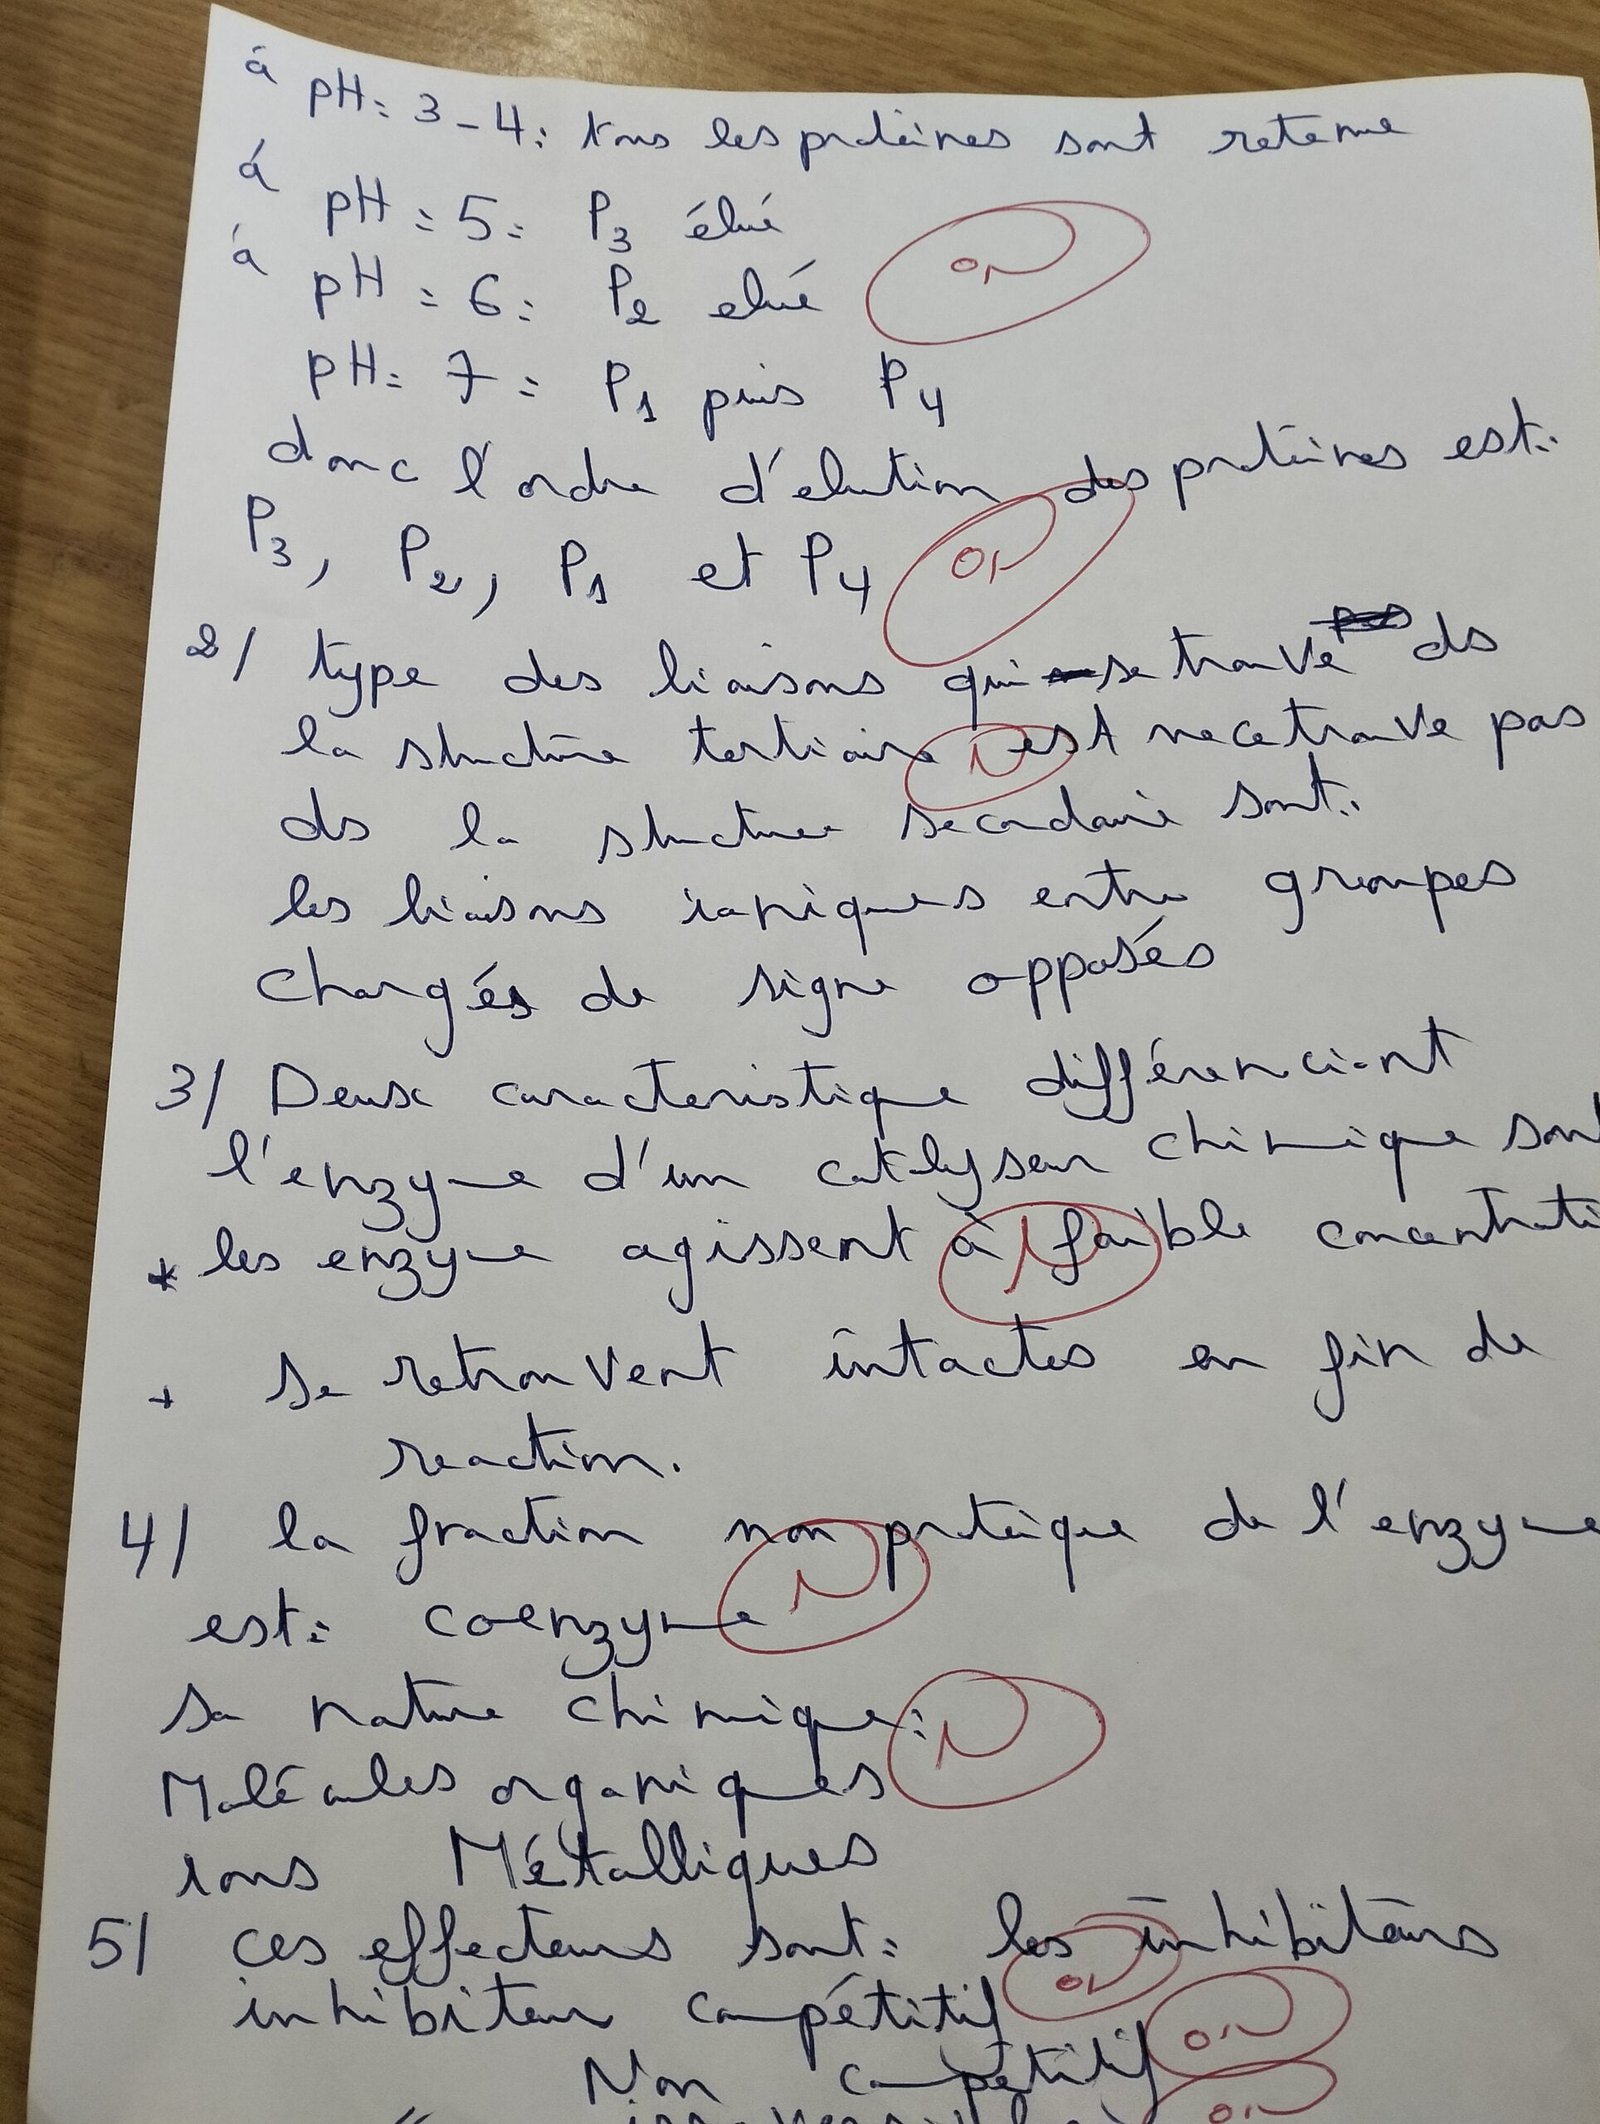 à pH = 3-4: tous les protéines sont retenue
à pH = 5 = P3 élué
à pH = 6 = P2 elué
pH = 7 = P1 puis P4
donc l'ordre d'elution des protéines est:
P3, P2, P1 et P4
2/ type des liaisons qui se trouve ds
la structure tertiaire est ne ce trouve pas
ds la structure secondaire sont:
les liaisons ioniques entre groupes
chargés de signe opposés
3/ Deux caracteristique différenciant
l'enzyme d'un catalyseur chimique sont
* les enzyme agissent à faible concentrati
+ se retrouvent intactes en fin de
reaction.
4/ la fraction non protéique de l'enzyme
est: coenzyme
sa nature chimique:
Molécules organiques
ions Métalliques
5/ ces effecteurs sont: les inhibiteurs
inhibiteur compétitif
Non compétitif